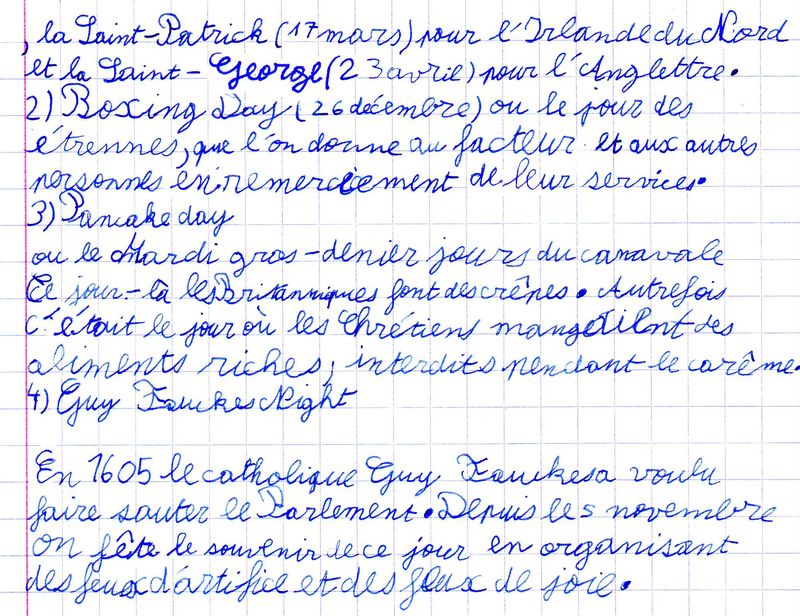 , la Saint-Patrick (17 mars) pour l'Irlande du Nord
et la Saint-George (23 avril) pour l'Anglettre.
2) Boxing Day (26 décembre) ou le jour des
étrennes, que l'on donne au facteur et aux autres
personnes en remerciement de leur services.
3) Pancake day
ou le Mardi gras - denier jours du canavale
Ce jour-là les Britanniques font des crêpes. Autrefois
c'était le jour où les Chrétiens mangeaient des
aliments riches, interdits pendant le carême.
4) Guy Fawkes Night
En 1605 le catholique Guy Fawkes a voulu
faire sauter le Parlement. Depuis le 5 novembre
on fête le souvenir de ce jour en organisant
des feux d'artifice et des feux de joie.